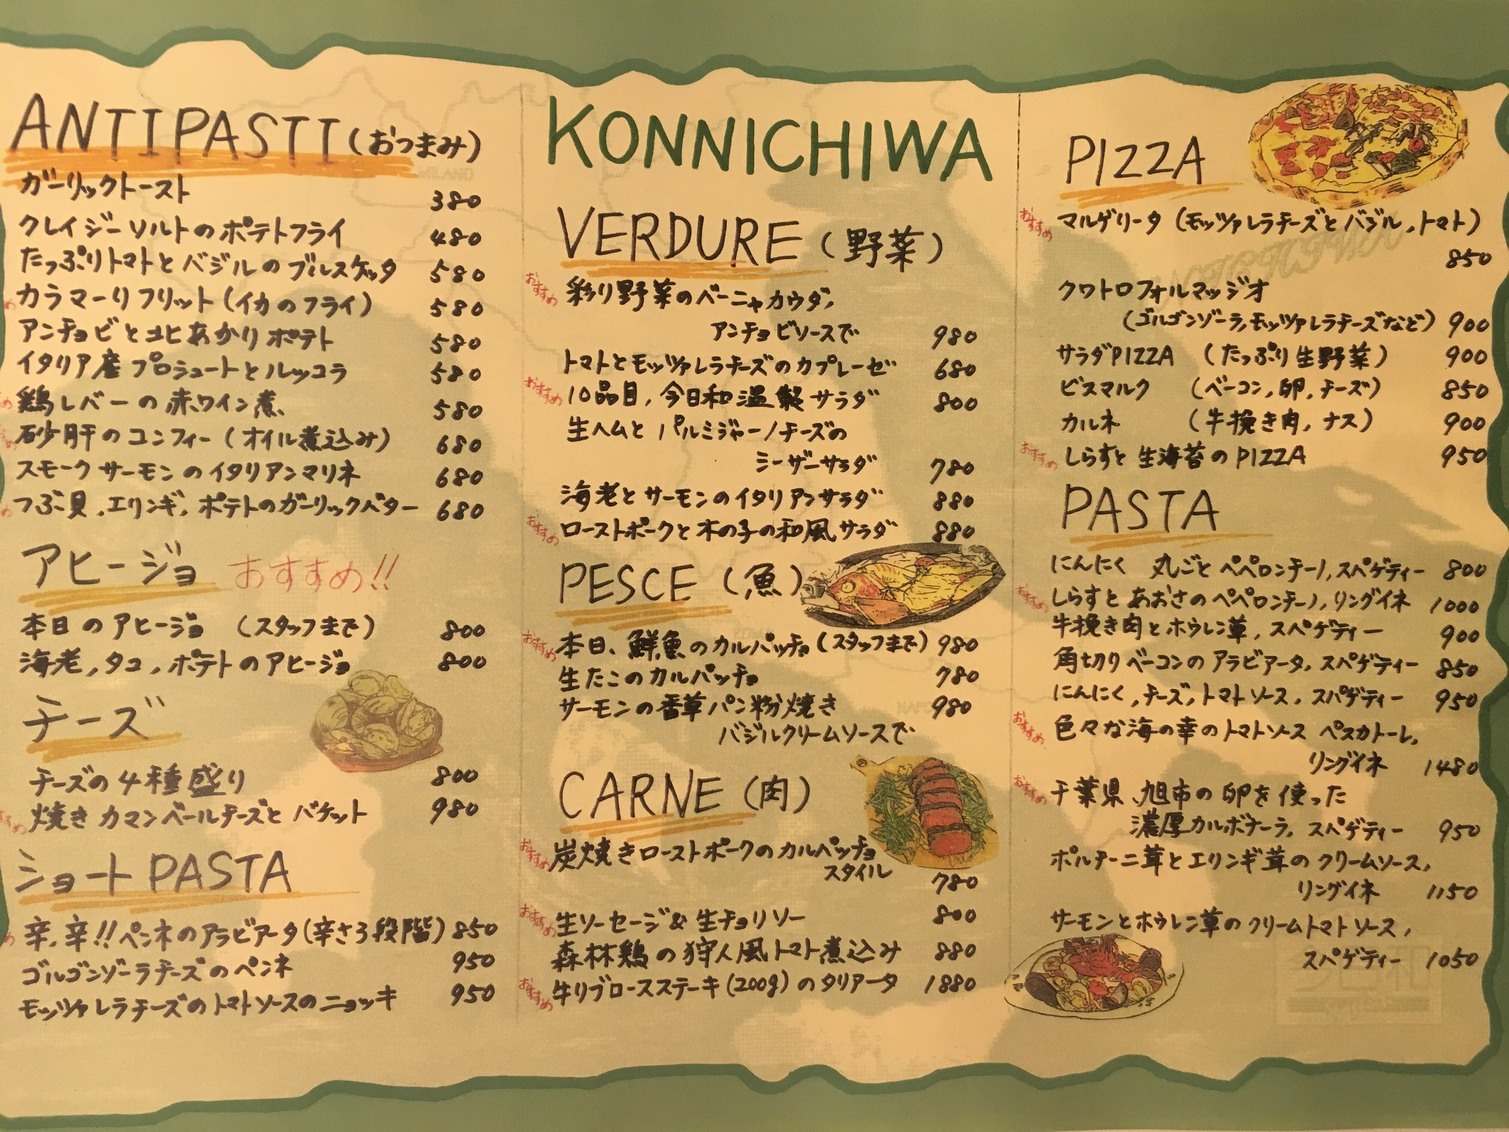 ANTIPASTI(おつまみ)
ガーリックトースト 380
クレイジーソルトのポテトフライ 480
たっぷりトマトとバジルのブルスケッタ 580
カラマーリフリット(イカのフライ) 580
アンチョビと北あかりポテト 580
イタリア産プロシュートとルッコラ 580
鶏レバーの赤ワイン煮 580
砂肝のコンフィー(オイル煮込み) 680
スモークサーモンのイタリアンマリネ 680
つぶ貝,エリンギ,ポテトのガーリックバター 680
アヒージョ おすすめ!!
本日のアヒージョ (スタッフまで) 800
海老,タコ,ポテトのアヒージョ 800
チーズ
チーズの4種盛り 800
焼きカマンベールチーズとバケット 980
ショートPASTA
辛,辛!!ペンネのアラビアータ(辛さ3段階) 850
ゴルゴンゾーラチーズのペンネ 950
モッツァレラチーズのトマトソースのニョッキ 950
KONNICHIWA
VERDURE(野菜)
おすすめ 彩り野菜のバーニャカウダ,
アンチョビソースで 980
トマトとモッツァレラチーズのカプレーゼ 680
おすすめ 10品目,今日和温製サラダ 800
生ハムとパルミジャーノチーズの
シーザーサラダ 780
海老とサーモンのイタリアンサラダ 880
おすすめ ローストポークと木の子の和風サラダ 880
PESCE(魚)
おすすめ 本日、鮮魚のカルパッチョ(スタッフまで) 980
生たこのカルパッチョ 780
サーモンの香草パン粉焼き 980
バジルクリームソースで
CARNE(肉)
おすすめ 炭焼きローストポークのカルペッチョ
スタイル 780
おすすめ 生ソーセージ&生チョリソー 800
森林鶏の狩人風トマト煮込み 880
おすすめ 牛リブロースステーキ(200g)のタリアータ 1880
PIZZA
おすすめ マルゲリータ(モッツァレラチーズとバジル,トマト)
850
クワトロフォルマッジオ
(ゴルゴンゾーラ,モッツァレラチーズなど) 900
サラダPIZZA (たっぷり生野菜) 900
ビスマルク (ベーコン,卵,チーズ) 850
カルネ (牛挽き肉,ナス) 900
おすすめ しらすと生海苔のPIZZA 950
PASTA
にんにく 丸ごとペペロンチーノ,スパゲティー 800
おすすめ しらすとあおさのペペロンチーノ,リングイネ 1000
牛挽き肉とホウレン草,スパゲティー 900
角切りベーコンのアラビアータ,スパゲティー 850
にんにく,チーズ,トマトソース,スパゲティー 950
おすすめ 色々な海の幸のトマトソース ペスカトーレ,
リングイネ 1480
おすすめ 千葉県、旭市の卵を使った
濃厚カルボナーラ,スパゲティー 950
ポルチーニ茸とエリンギ茸のクリームソース,
リングイネ 1150
サーモンとホウレン草のクリームトマトソース,
スパゲティー 1050